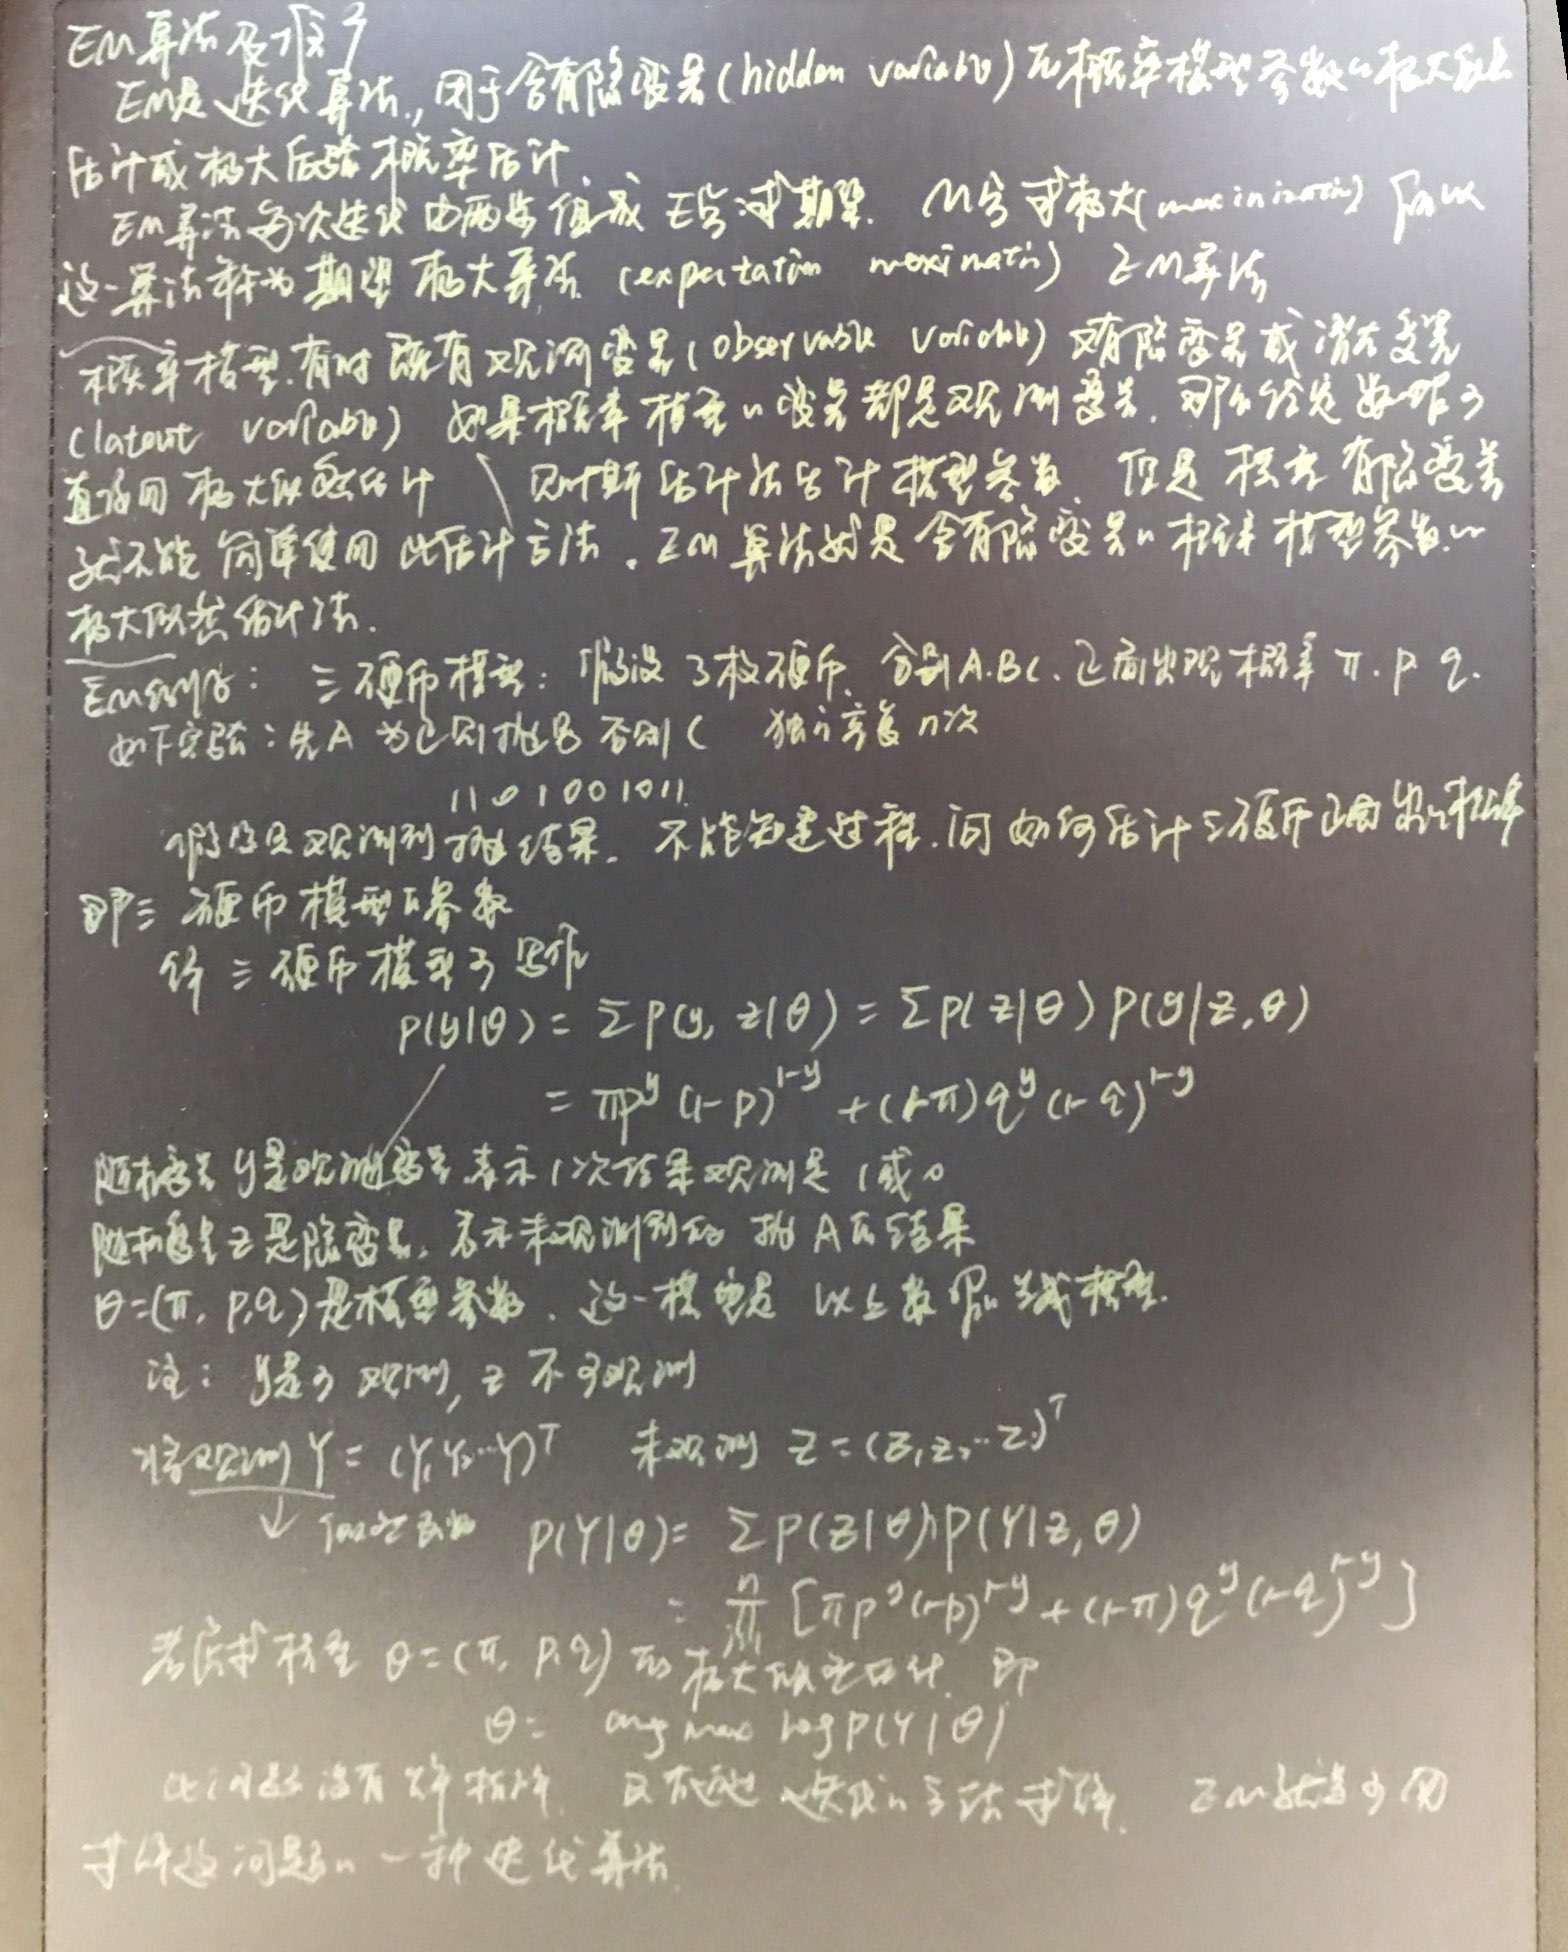 EM算法及推广
EM是迭代算法,用于含有隐变量(hidden variable)的概率模型参数的极大似然
估计或极大后验概率估计.
EM算法每次迭代由两步组成 E步求期望. M步求极大(maximization) 所以
这一算法称为期望极大算法 (expectation maximization) EM算法
概率模型.有时既有观测变量(observable variable) 又有隐变量或潜在变量
(latent variable) 如果概率模型的变量都是观测变量.那么给定数据可
直接用极大似然估计 \ 贝叶斯估计法估计模型参数. 但是模型有隐变量
就不能简单使用此估计方法. EM算法就是含有隐变量的概率模型参数的
极大似然估计法.
EM例子: 三硬币模型: 假设3枚硬币. 分别A.B.C.正面出现概率 π. p q.
如下实验:先A 为正则抛B 否则C 独立重复n次
1101001011
假设只观测到抛结果. 不能知道过程.问如何估计三硬币正面出现概率
即三硬币模型的参数
解 三硬币模型可写作
P(y|θ) = ΣP(y, z|θ) = ΣP(z|θ)P(y|z,θ)
= πp^y (1-p)^{1-y} + (1-π)q^y (1-q)^{1-y}
随机变量 y是观测变量 表示1次结果观测是1或0
随机变量z是隐变量. 表示未观测到的抛A的结果
θ=(π, p,q)是模型参数. 这一模型是 以上数据的生成模型.
注: y是可观测, z不可观测
将观测Y = (Y, Y₂...Y)^T 未观测 Z = (Z, Z₂...Z)^T
↓ 似然函数 P(Y|θ) = ΣP(Z|θ)P(Y|Z,θ)
= ∏ [πp^y(1-p)^{1-y} + (1-π)q^y(1-q)^{1-y}]
考虑求模型 θ=(π, p,q)的极大似然估计. 即
θ= arg max log P(Y|θ)
此问题没有解析解. 只有通过迭代的方法求解. EM就是可用
求解这问题的一种迭代算法.